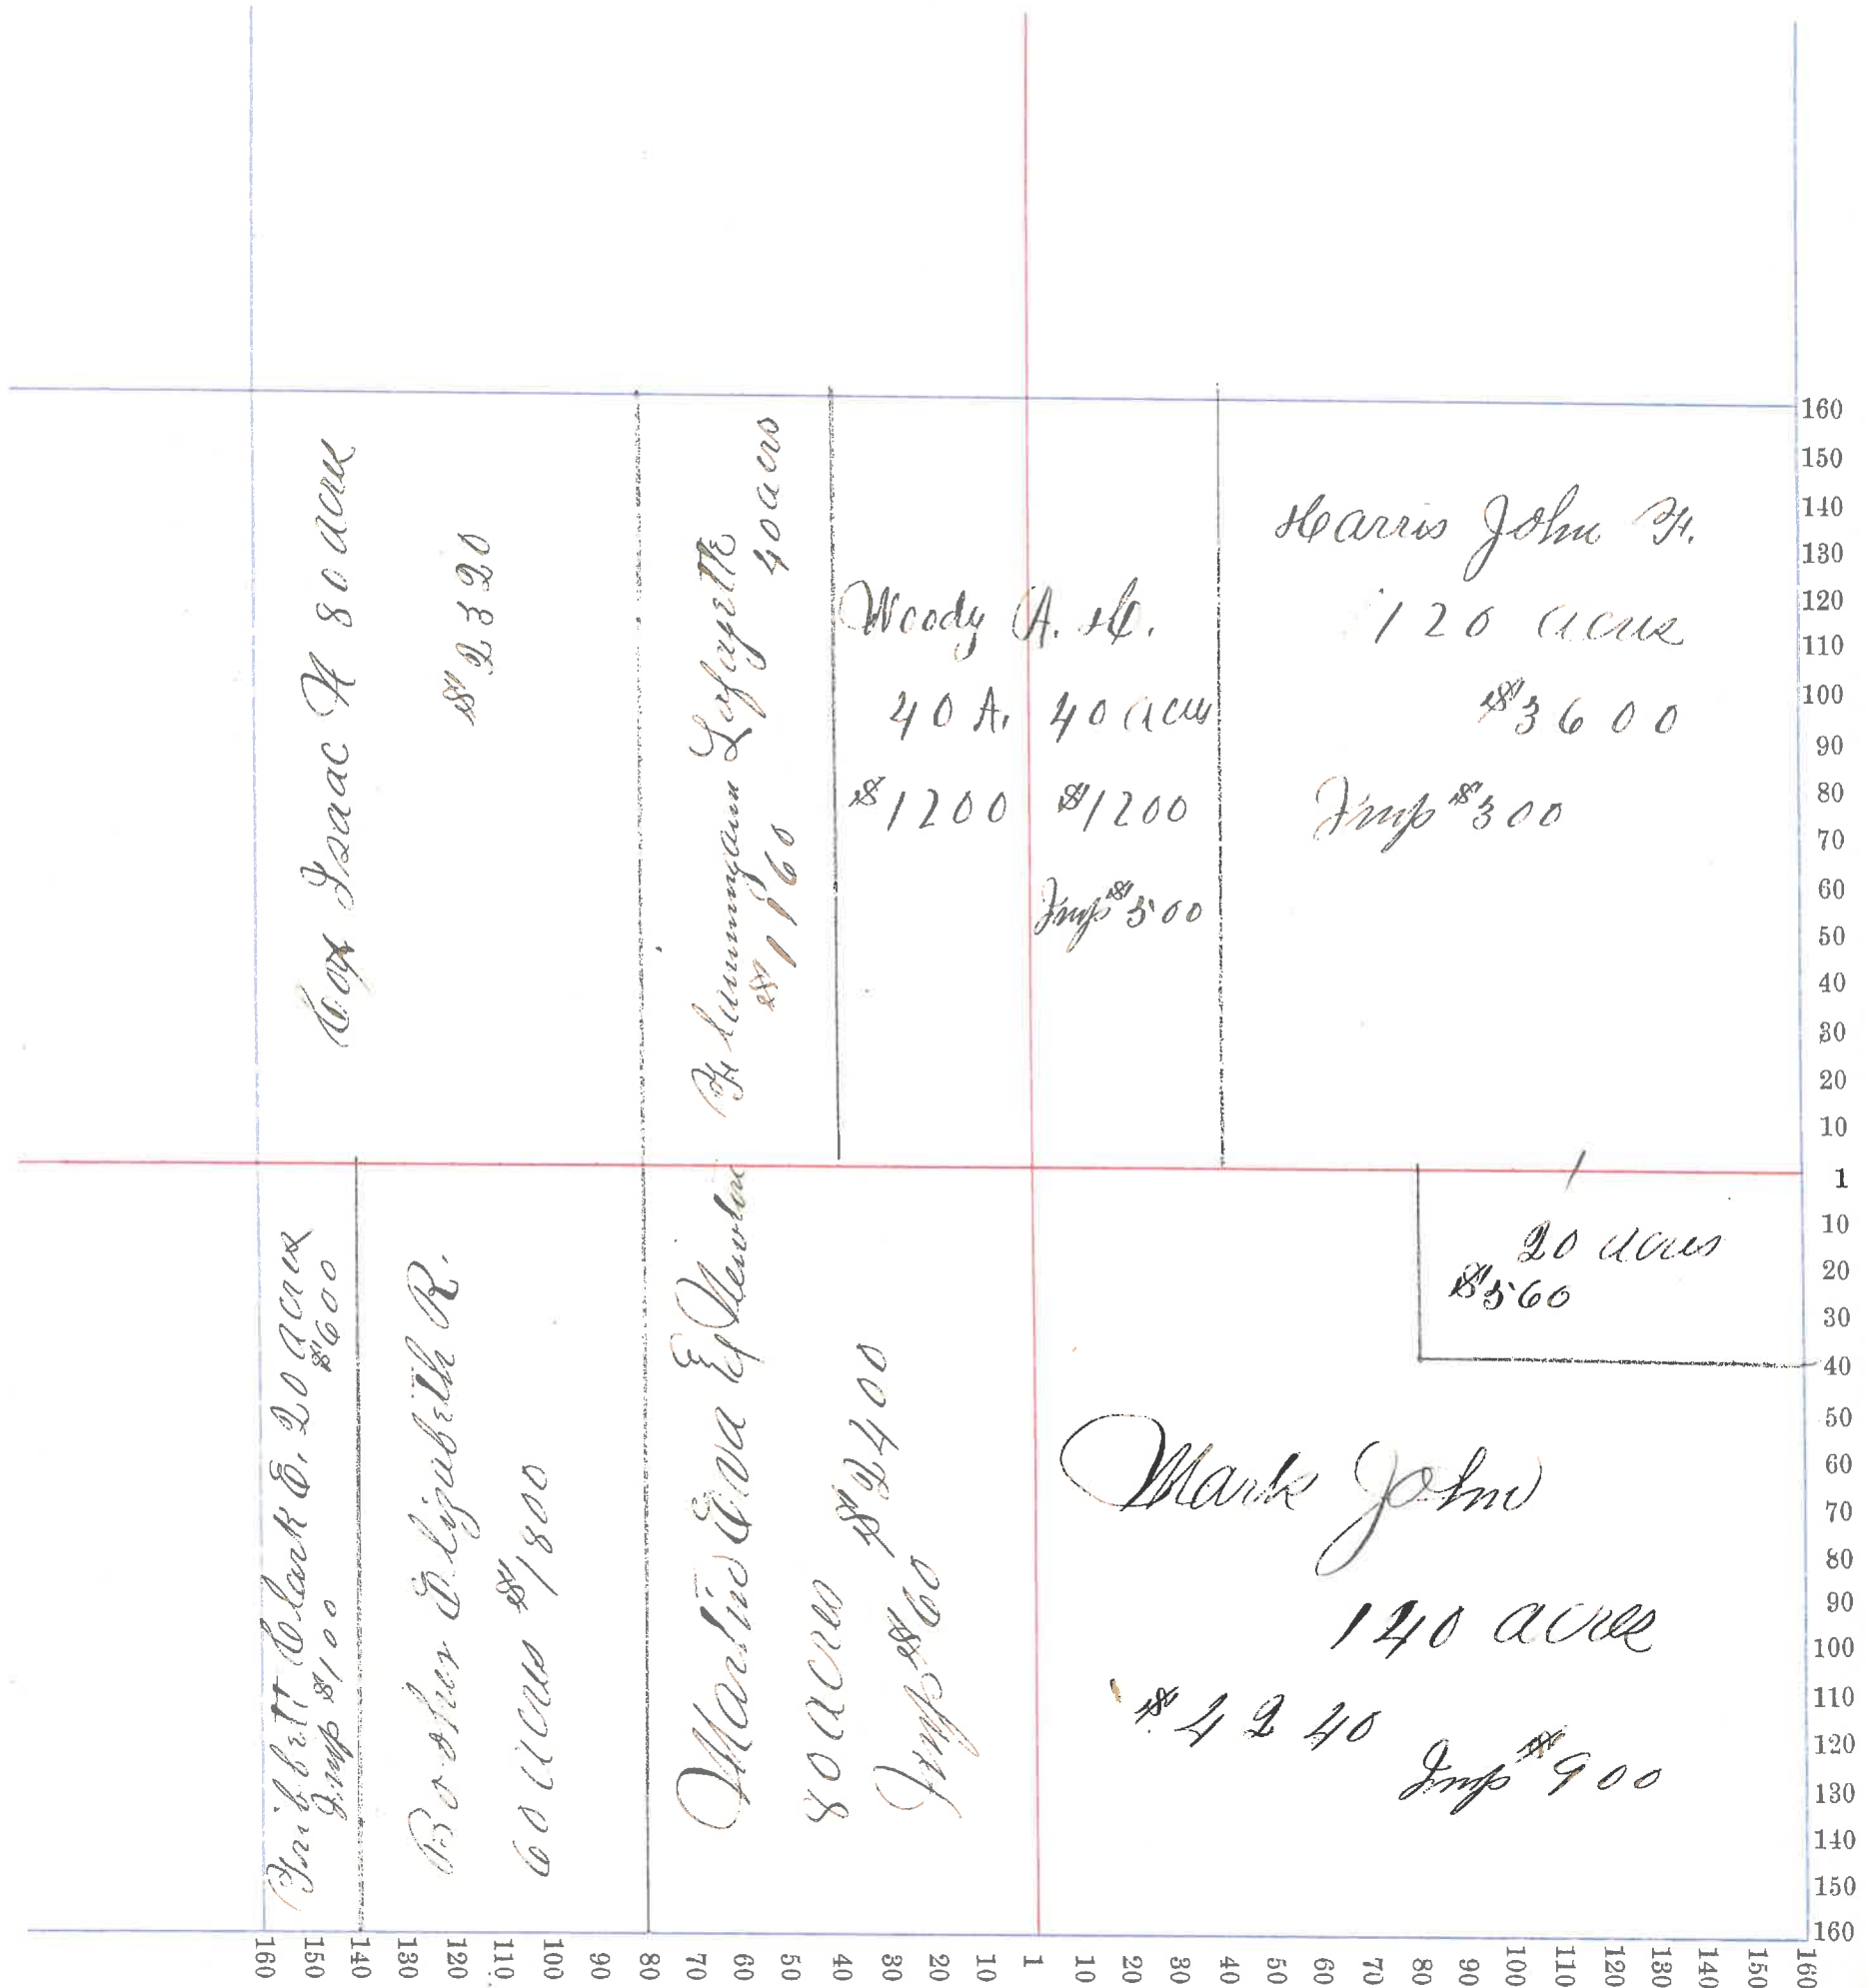 Cox Isaac N 80 acres
$2320
Lafayette
40 acres
$1160
Woody A. H.
40 A. 40 acres
$1200 $1200
Imp $500
Harris John F.
120 acres
$3600
Imp $300
20 acres
$560
Tribbett Clark E. 20 acres
$600
Imp $100
Booher Elizabeth R.
60 acres $1800
Martin Eva E
80 acres $2400
Imp $60
Mark John
140 acres
$4240
Imp $900
160
150
140
130
120
110
100
90
80
70
60
50
40
30
20
10
1
10
20
30
40
50
60
70
80
90
100
110
120
130
140
150
160
160 150 140 130 120 110 100 90 80 70 60 50 40 30 20 10 1 10 20 30 40 50 60 70 80 90 100 110 120 130 140 150 160